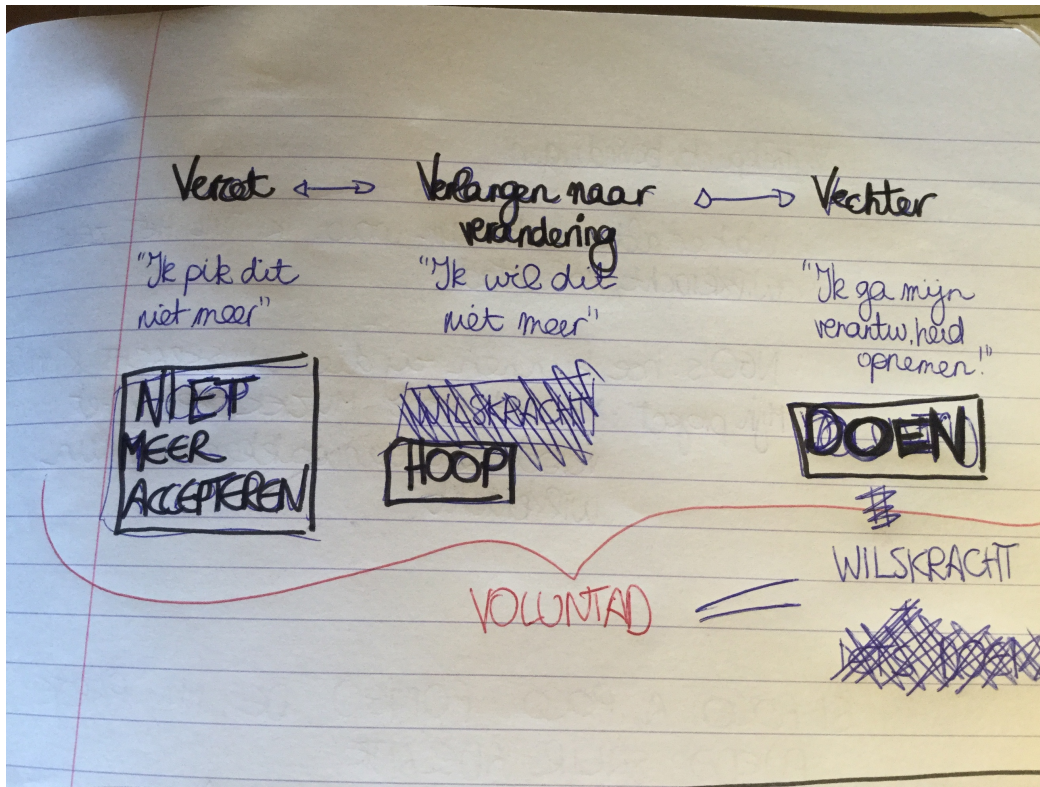 Verzet ↔ Verlangen naar verandering → Vechter
"Ik pik dit
niet meer"
"Ik wil dit
niét meer"
"Ik ga mijn
verantw.heid
opnemen!"
NIET
MEER
ACCEPTEREN
WILSKRACHT
HOOP
DOEN
WILSKRACHT
VOLUNTAD =
IETS DOEN